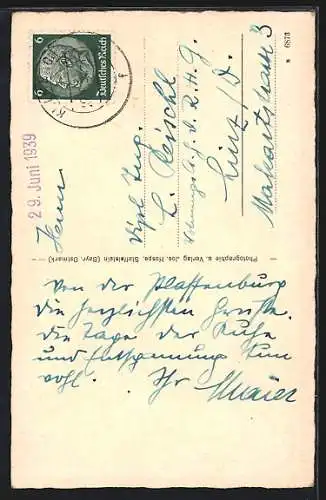 6 6
Deutsches Reich
29. Juni 1939
Herrn
Dipl. Ing.
L. Reischl
Wohnungs A. f. d. R. H. G.
Linz / D.
3
* 6873
Photographie u. Verlag Jos. Haspe, Staffelstein (Bayr. Ostmark)
Von der Plassenburg
die herzlichsten Grüße.
die Tage der Ruhe
und Entspannung tun
wohl. Ihr Maier